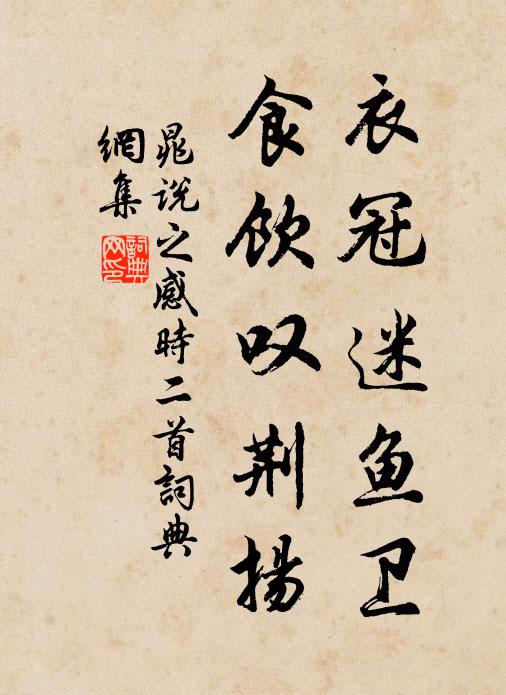 衣冠迷鱼卫
食饮叹荆揚
晁说之感時二首詞典
網集
詞典网印